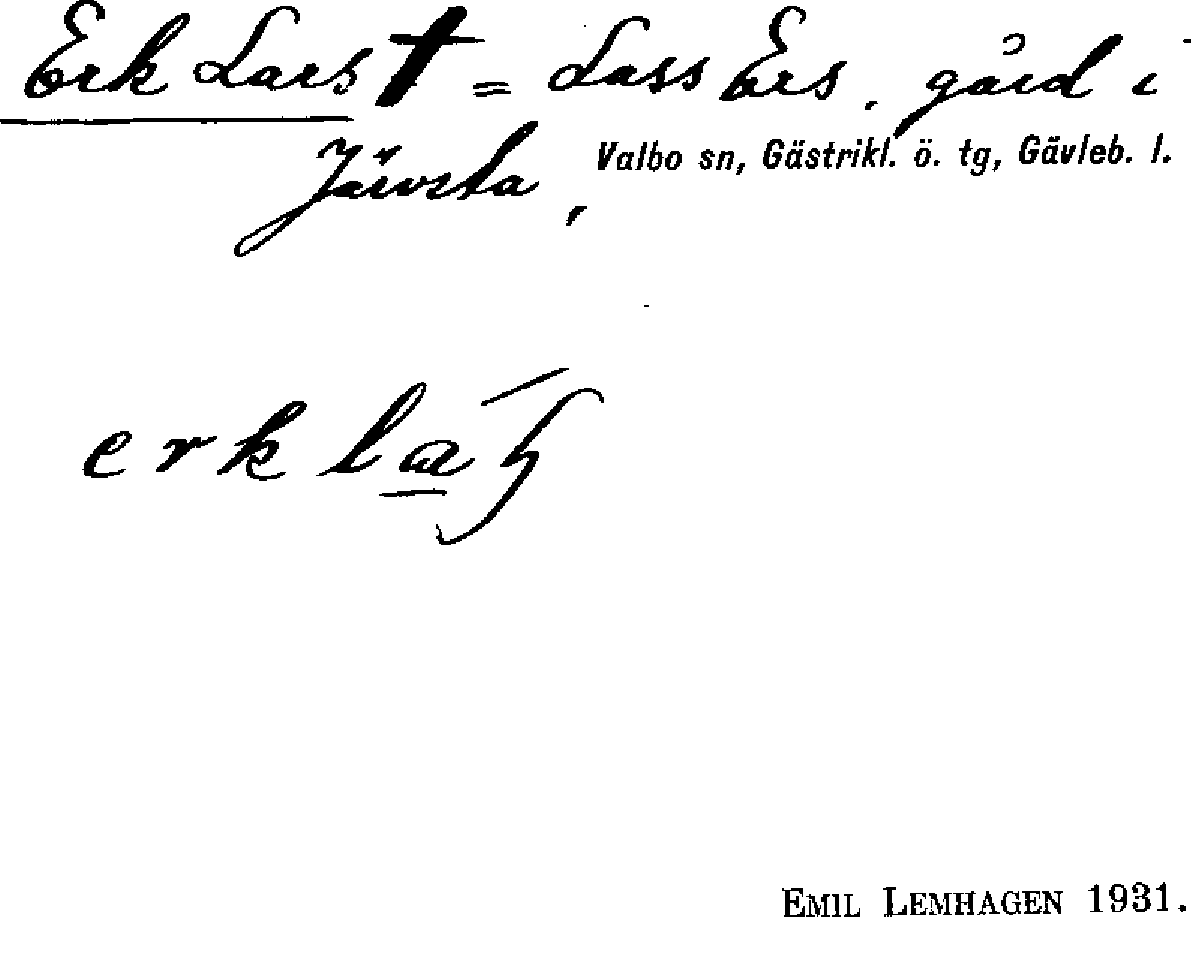 Erk Lars † = Lass Ers. gård i
Järvsta, Valbo sn, Gästrikl. ö. tg, Gävleb. l.
erk
EMIL LEMHAGEN 1931.